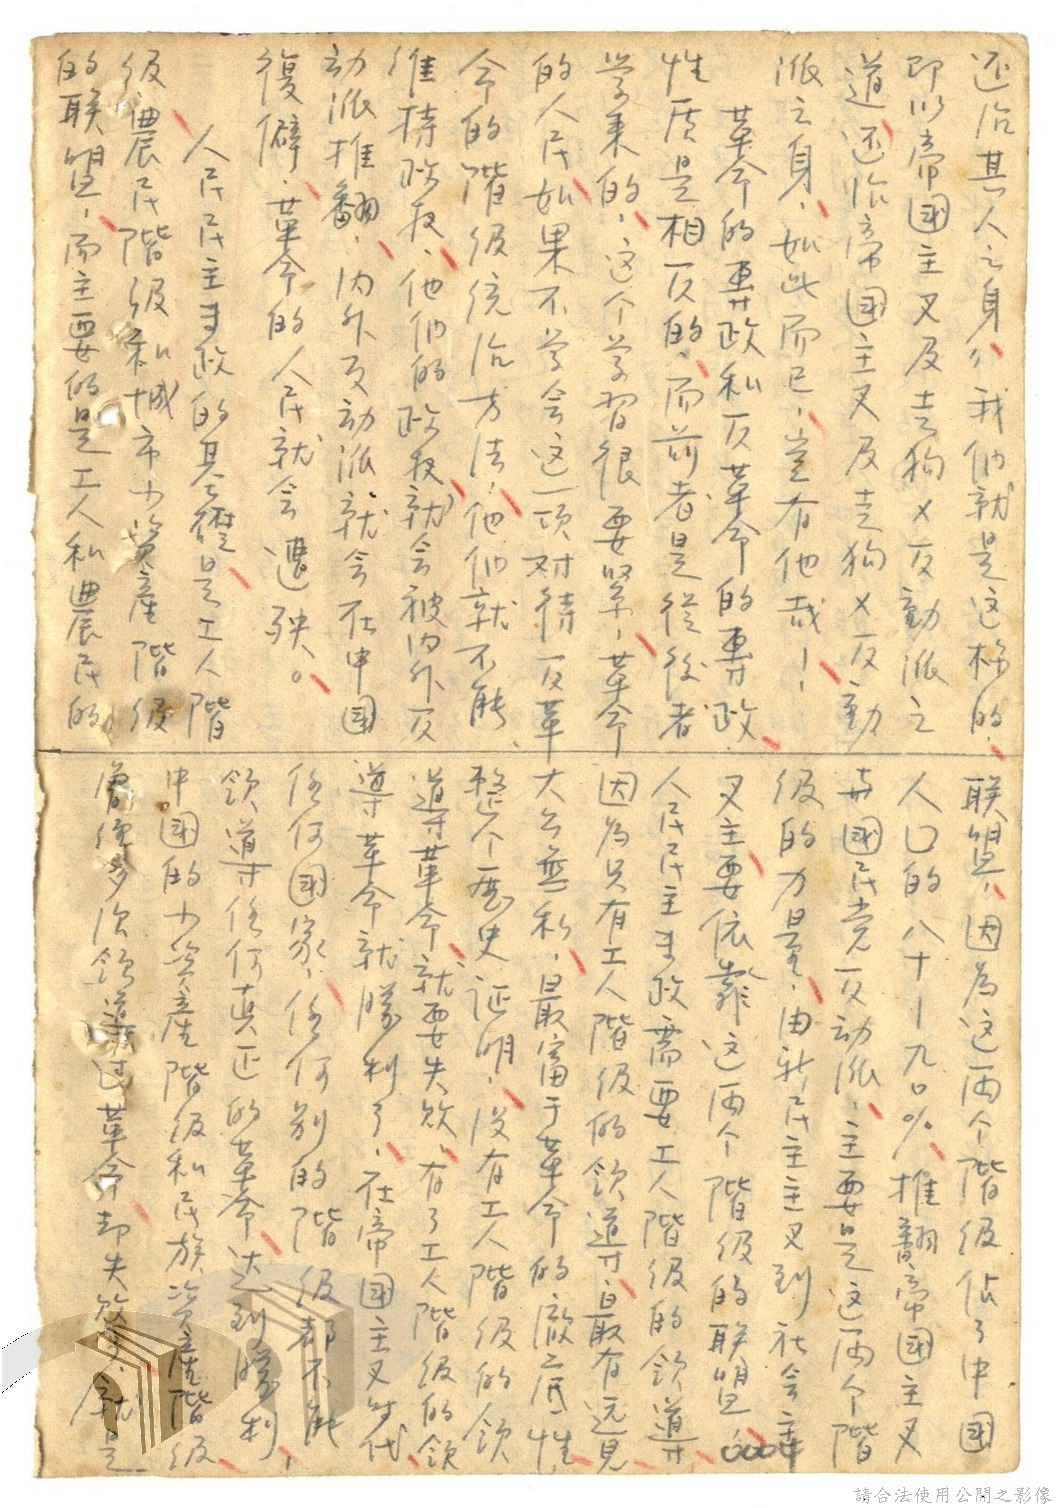 还治其人之身”我们就是这样的、
即以帝國主义及走狗×反動派之
道、还治帝國主义及走狗×反動
派之身、如此而已、岂有他哉！
革命的專政和反革命的專政、
性质是相反的、而前者是從後者
学来的、这个学習很要紧、革命
的人民如果不学会这一项对待反革
命的階级统治方法、他们就不能、
维持政权、他们的政权就会被内外反
动派推翻、内外反动派就会在中國
復僻、革命的人民就会遭殃。
人民民主专政的基礎是工人階
级農民階级和城市小資産階级
的联盟、而主要的是工人和農民的
联盟、因為这两个階级佔了中國
人口的八十—九〇%、推翻帝國主义
和國民党反动派、主要是这两个階
级的力量、由新民主主义到社会主
义主要依靠这两个階级的联盟。
人民民主专政需要工人階级的領導
因為只有工人階级的領導最有远見
大公無私、最富于革命的徹底性
整个歷史证明、没有工人階级的領
導革命就要失敗、有了工人階级的領
導革命就勝利了、在帝國主义时代
任何國家、任何别的階级都不能
領導任何真正的革命达到勝利、
中國的小資産階级和民族資産階级
曾經多次領導过革命却失敗了、就是
請合法使用公開之影像